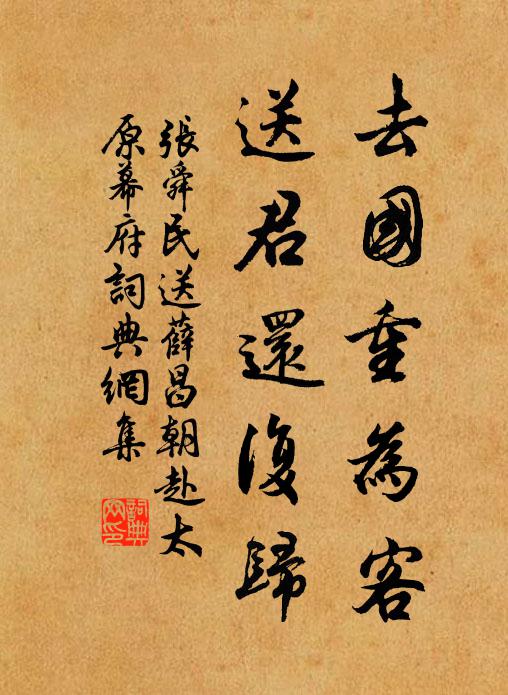 去國重為客
送君還復歸
張舜民送薛昌朝赴太
原幕府詞典網集
詞典
网印